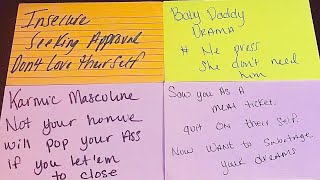 Insecure
Seeking Approval
Dont Love Theirself
Baby Daddy
DRAMA
# Ne press
she don't need
him
Karmic Masculine
Not your homie
will pop your Ass
if you let 'em
to close
Saw you AS A
meal ticket.
quit ON their self.
Now want to Sabotage
your dreams